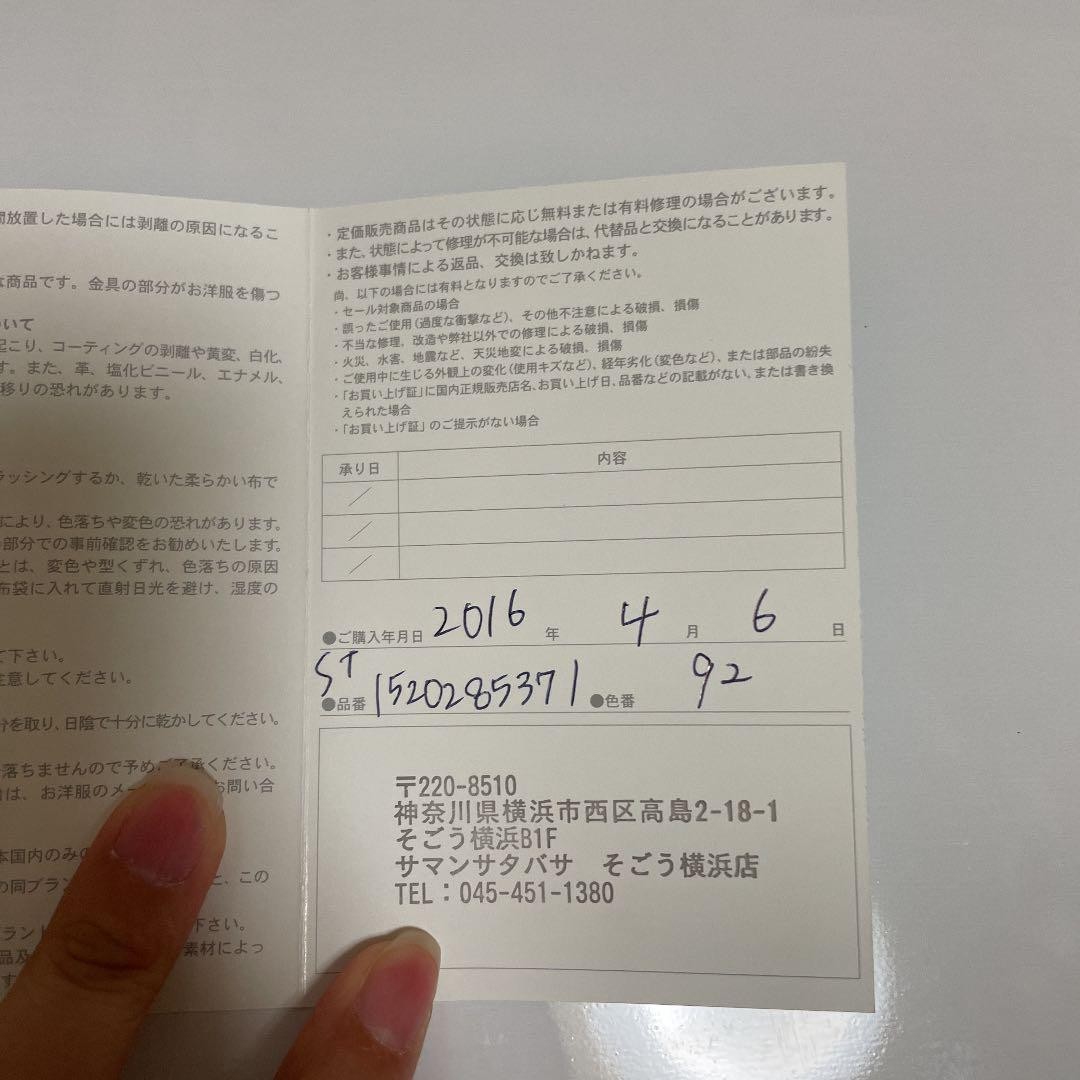 間放置した場合には剥離の原因になるこ
な商品です。金具の部分がお洋服を傷つ
ついて
起こり、コーティングの剥離や黄変、白化、
す。また、革、塩化ビニール、エナメル、
移りの恐れがあります。
ラッシングするか、乾いた柔らかい布で
により、色落ちや変色の恐れがあります。
部分での事前確認をお勧めいたします。
とは、変色や型くずれ、色落ちの原因
布袋に入れて直射日光を避け、湿度の
て下さい。
注意してください。
分を取り、日陰で十分に乾かしてください。
落ちませんので予めご了承ください。
合は、お洋服のメー お問い合
本国内のみの
の同ブラン と、この
ブラント 下さい。
品及 素材によっ
す
・定価販売商品はその状態に応じ無料または有料修理の場合がございます。
・また、状態によって修理が不可能な場合は、代替品と交換になることがあります。
・お客様事情による返品、交換は致しかねます。
尚、以下の場合には有料となりますのでご了承ください。
・セール対象商品の場合
・誤ったご使用(過度な衝撃など)、その他不注意による破損、損傷
・不当な修理、改造や弊社以外での修理による破損、損傷
・火災、水害、地震など、天災地変による破損、損傷
・ご使用中に生じる外観上の変化(使用キズなど)、経年劣化(変色など)、または部品の紛失
・「お買い上げ証」に国内正規販売店名、お買い上げ日、品番などの記載がない、または書き換
えられた場合
・「お買い上げ証」のご提示がない場合
承り日 内容
／
／
／
●ご購入年月日 2016 年 4 月 6 日
ST
●品番 1520285371 ●色番 92
〒220-8510
神奈川県横浜市西区高島2-18-1
そごう横浜B1F
サマンサタバサ そごう横浜店
TEL：045-451-1380